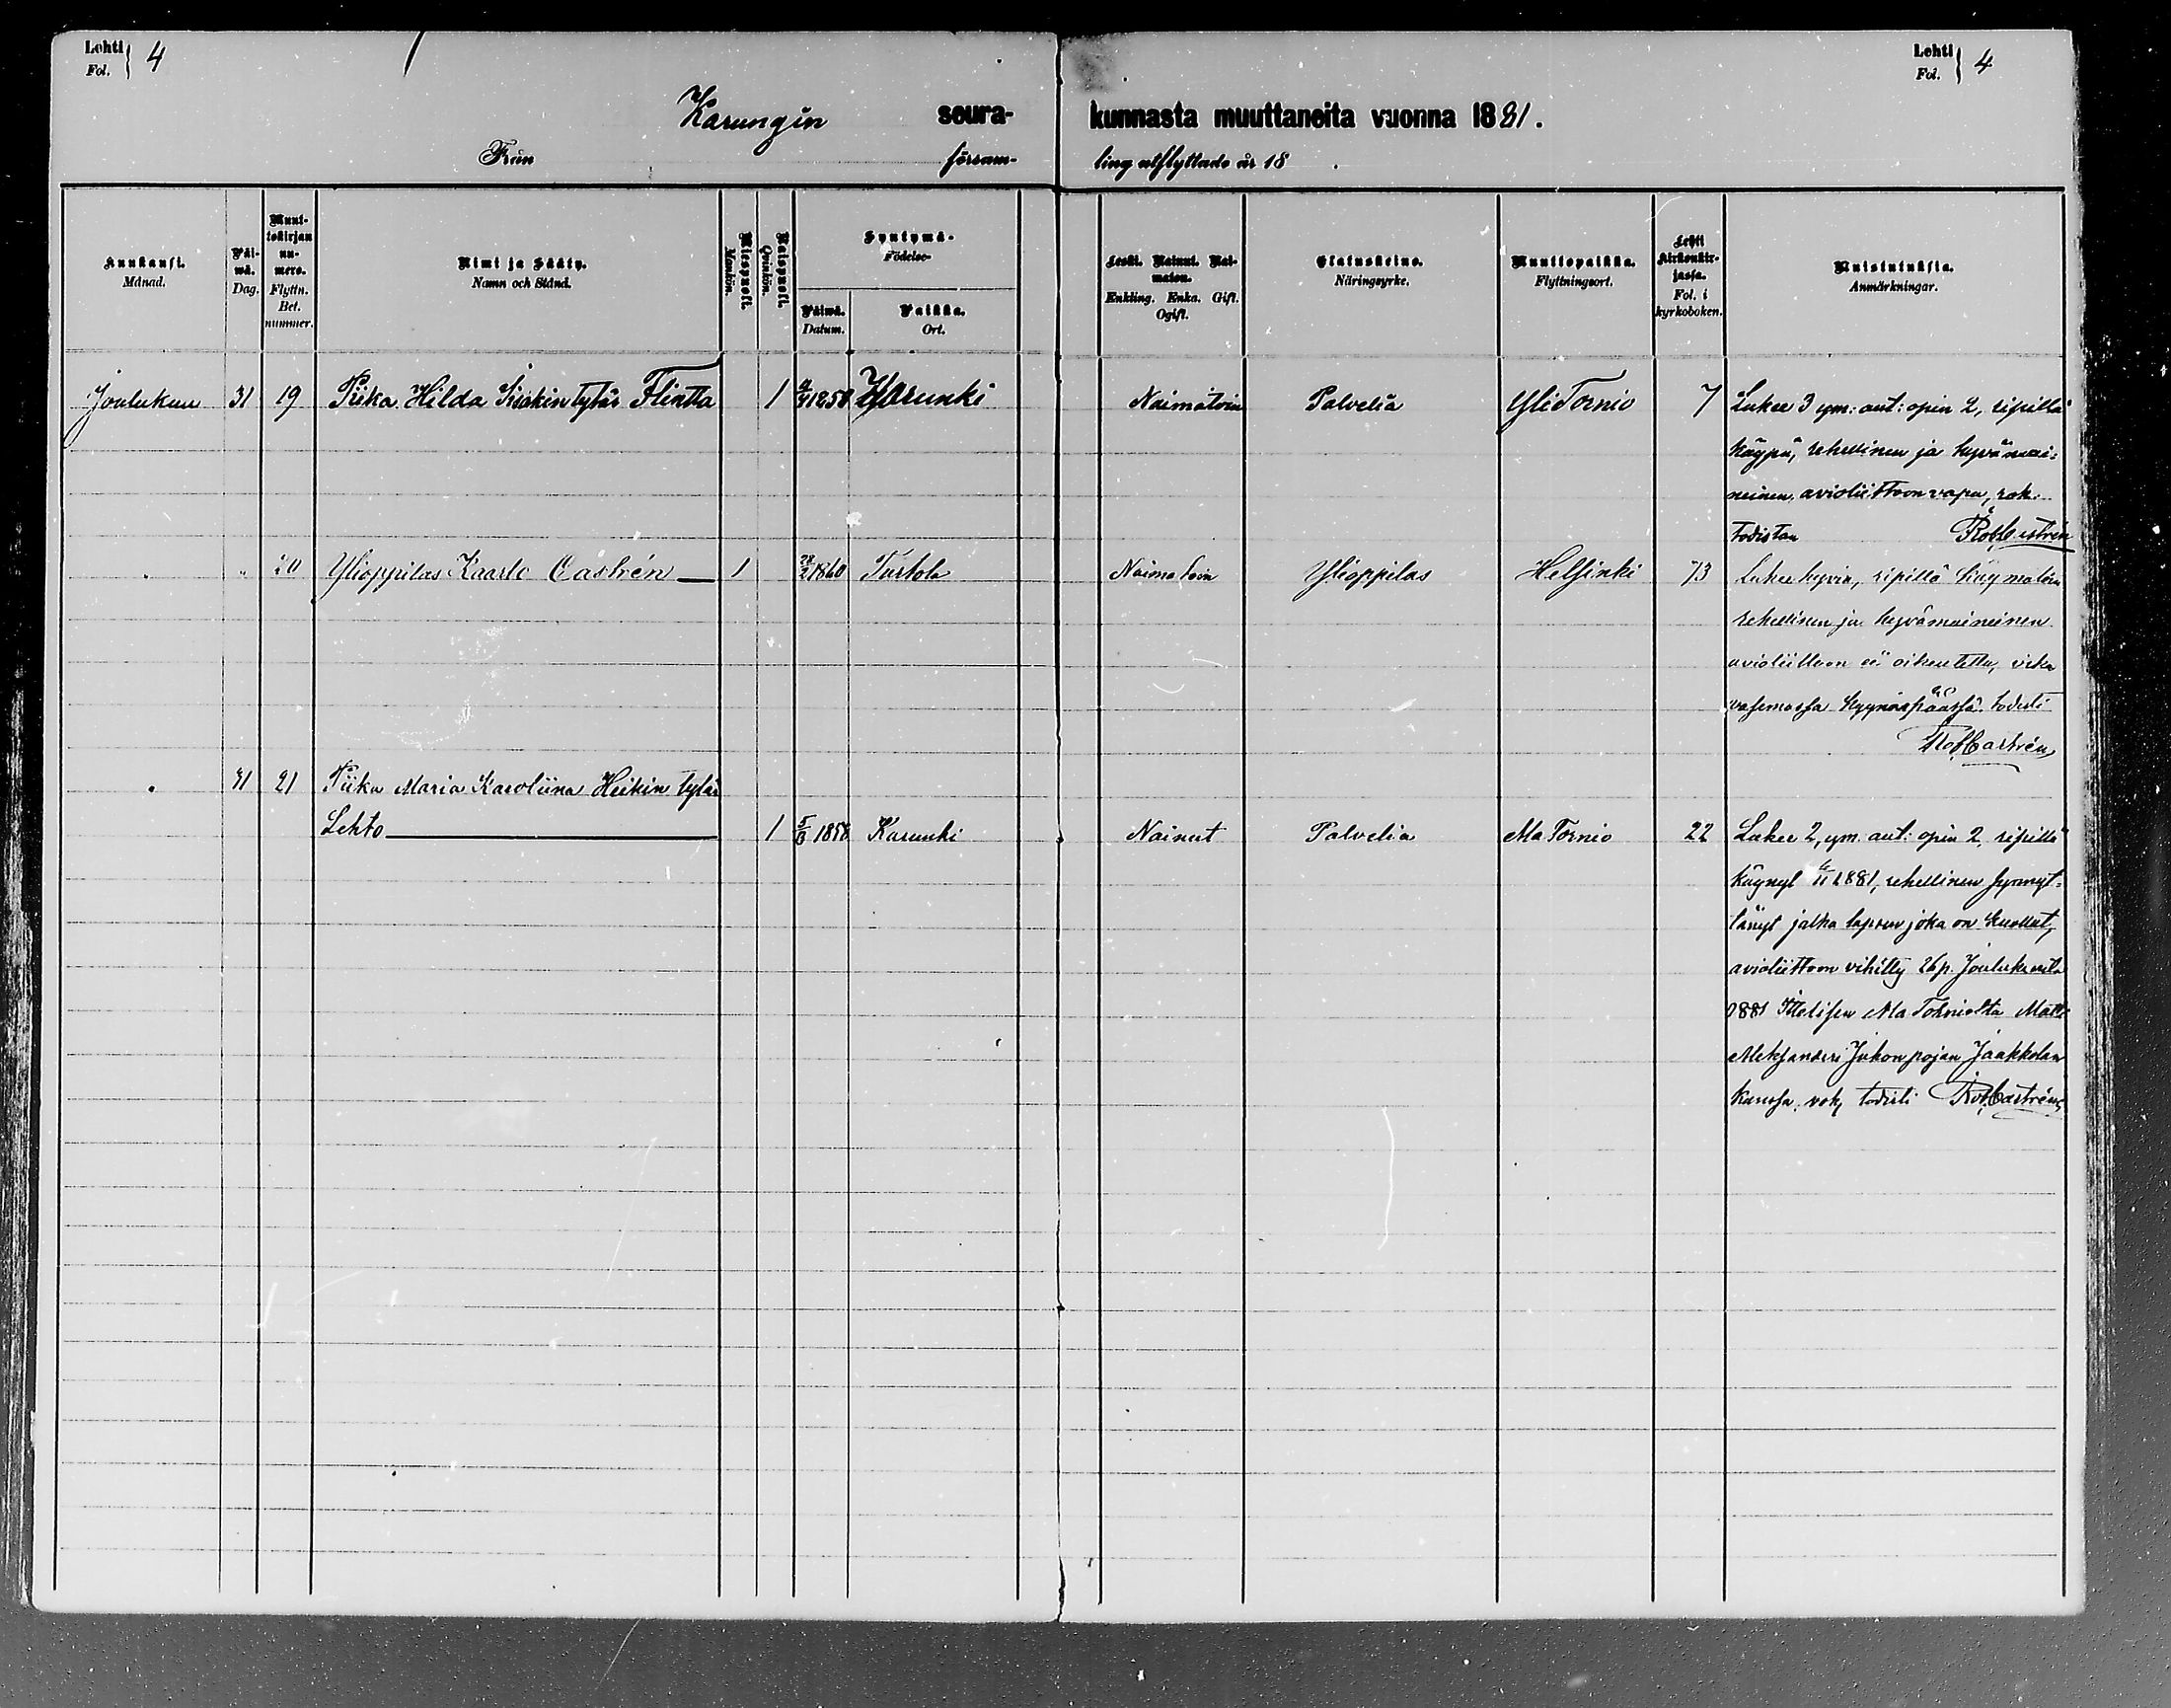 Lehti Fol. 4
Lehti Fol. 4
Karungin seurakunnasta muuttaneita vuonna 1881.
Från församling utflyttade år 18 .
Kuukausi. Månad.
Päiwä. Dag.
Muuttokirjan numero. Flyttn. Bet. nummer.
Nimi ja Sääty. Namn och Stånd.
Miespuoli. Mankön.
Naispuoli. Qvinkön.
Syntymä- Födelse-
Päiwä. Datum.
Paikka. Ort.
Leski. Nainut. Naimaton. Enkling. Enka. Gift. Ogift.
Elatuskeino. Näringsyrke.
Muuttopaikka. Flyttningsort.
Lehti kirkonkirjassa. Fol. i kyrkoboken.
Muistutuksia. Anmärkningar.
Joulukuu 31 19 Piika Hilda Iisakintytär Flintta 1 Karunki Naimatoin Palvelia YliTornio 7 Lukee 3 ym: aut: opin 2, ripillä
käypä, rehellinen ja hyvämai-
neinen, avioliittoon vapa, rok.
todistan Rob. Castrén
" " 20 Ylioppilas Kaarlo Castrén 1 1860 Turtola Naimatoin Ylioppilas Helsinki 73 Lukee hyvin, ripillä käymätöin
rehellinen ja hyvämaineinen
avioliittoon ei oikeutettu, vika
vasemassa kyynäspäässä. todisti
Rob. Castrén
" 31 21 Piika Maria Karoliina Heikin tytär
Lehto 1 1858 Karunki Nainut Palvelia Ala Tornio 22 Lukee 2, ym: aut: opin 2, ripillä
käynyt 1881, rehellinen synnyt-
tänyt jalka lapsen joka on kuollut,
avioliittoon vihitty 26 p. Joulukuuta
1881 Itselisen Ala Torniolta Matti
Aleksanderi Juhonpojan Jaakkolan
kanssa. rok, todisti Rob. Castrén